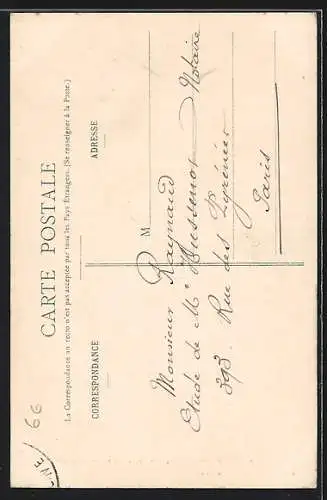 CARTE POSTALE
La Correspondance au recto n'est pas acceptée par tous les Pays Étrangers. (Se renseigner à la Poste.)
CORRESPONDANCE
ADRESSE
M
Monsieur Raynaud
Etude de Me Mussenot Notaire
393 Rue des Pyrénées
Paris
66